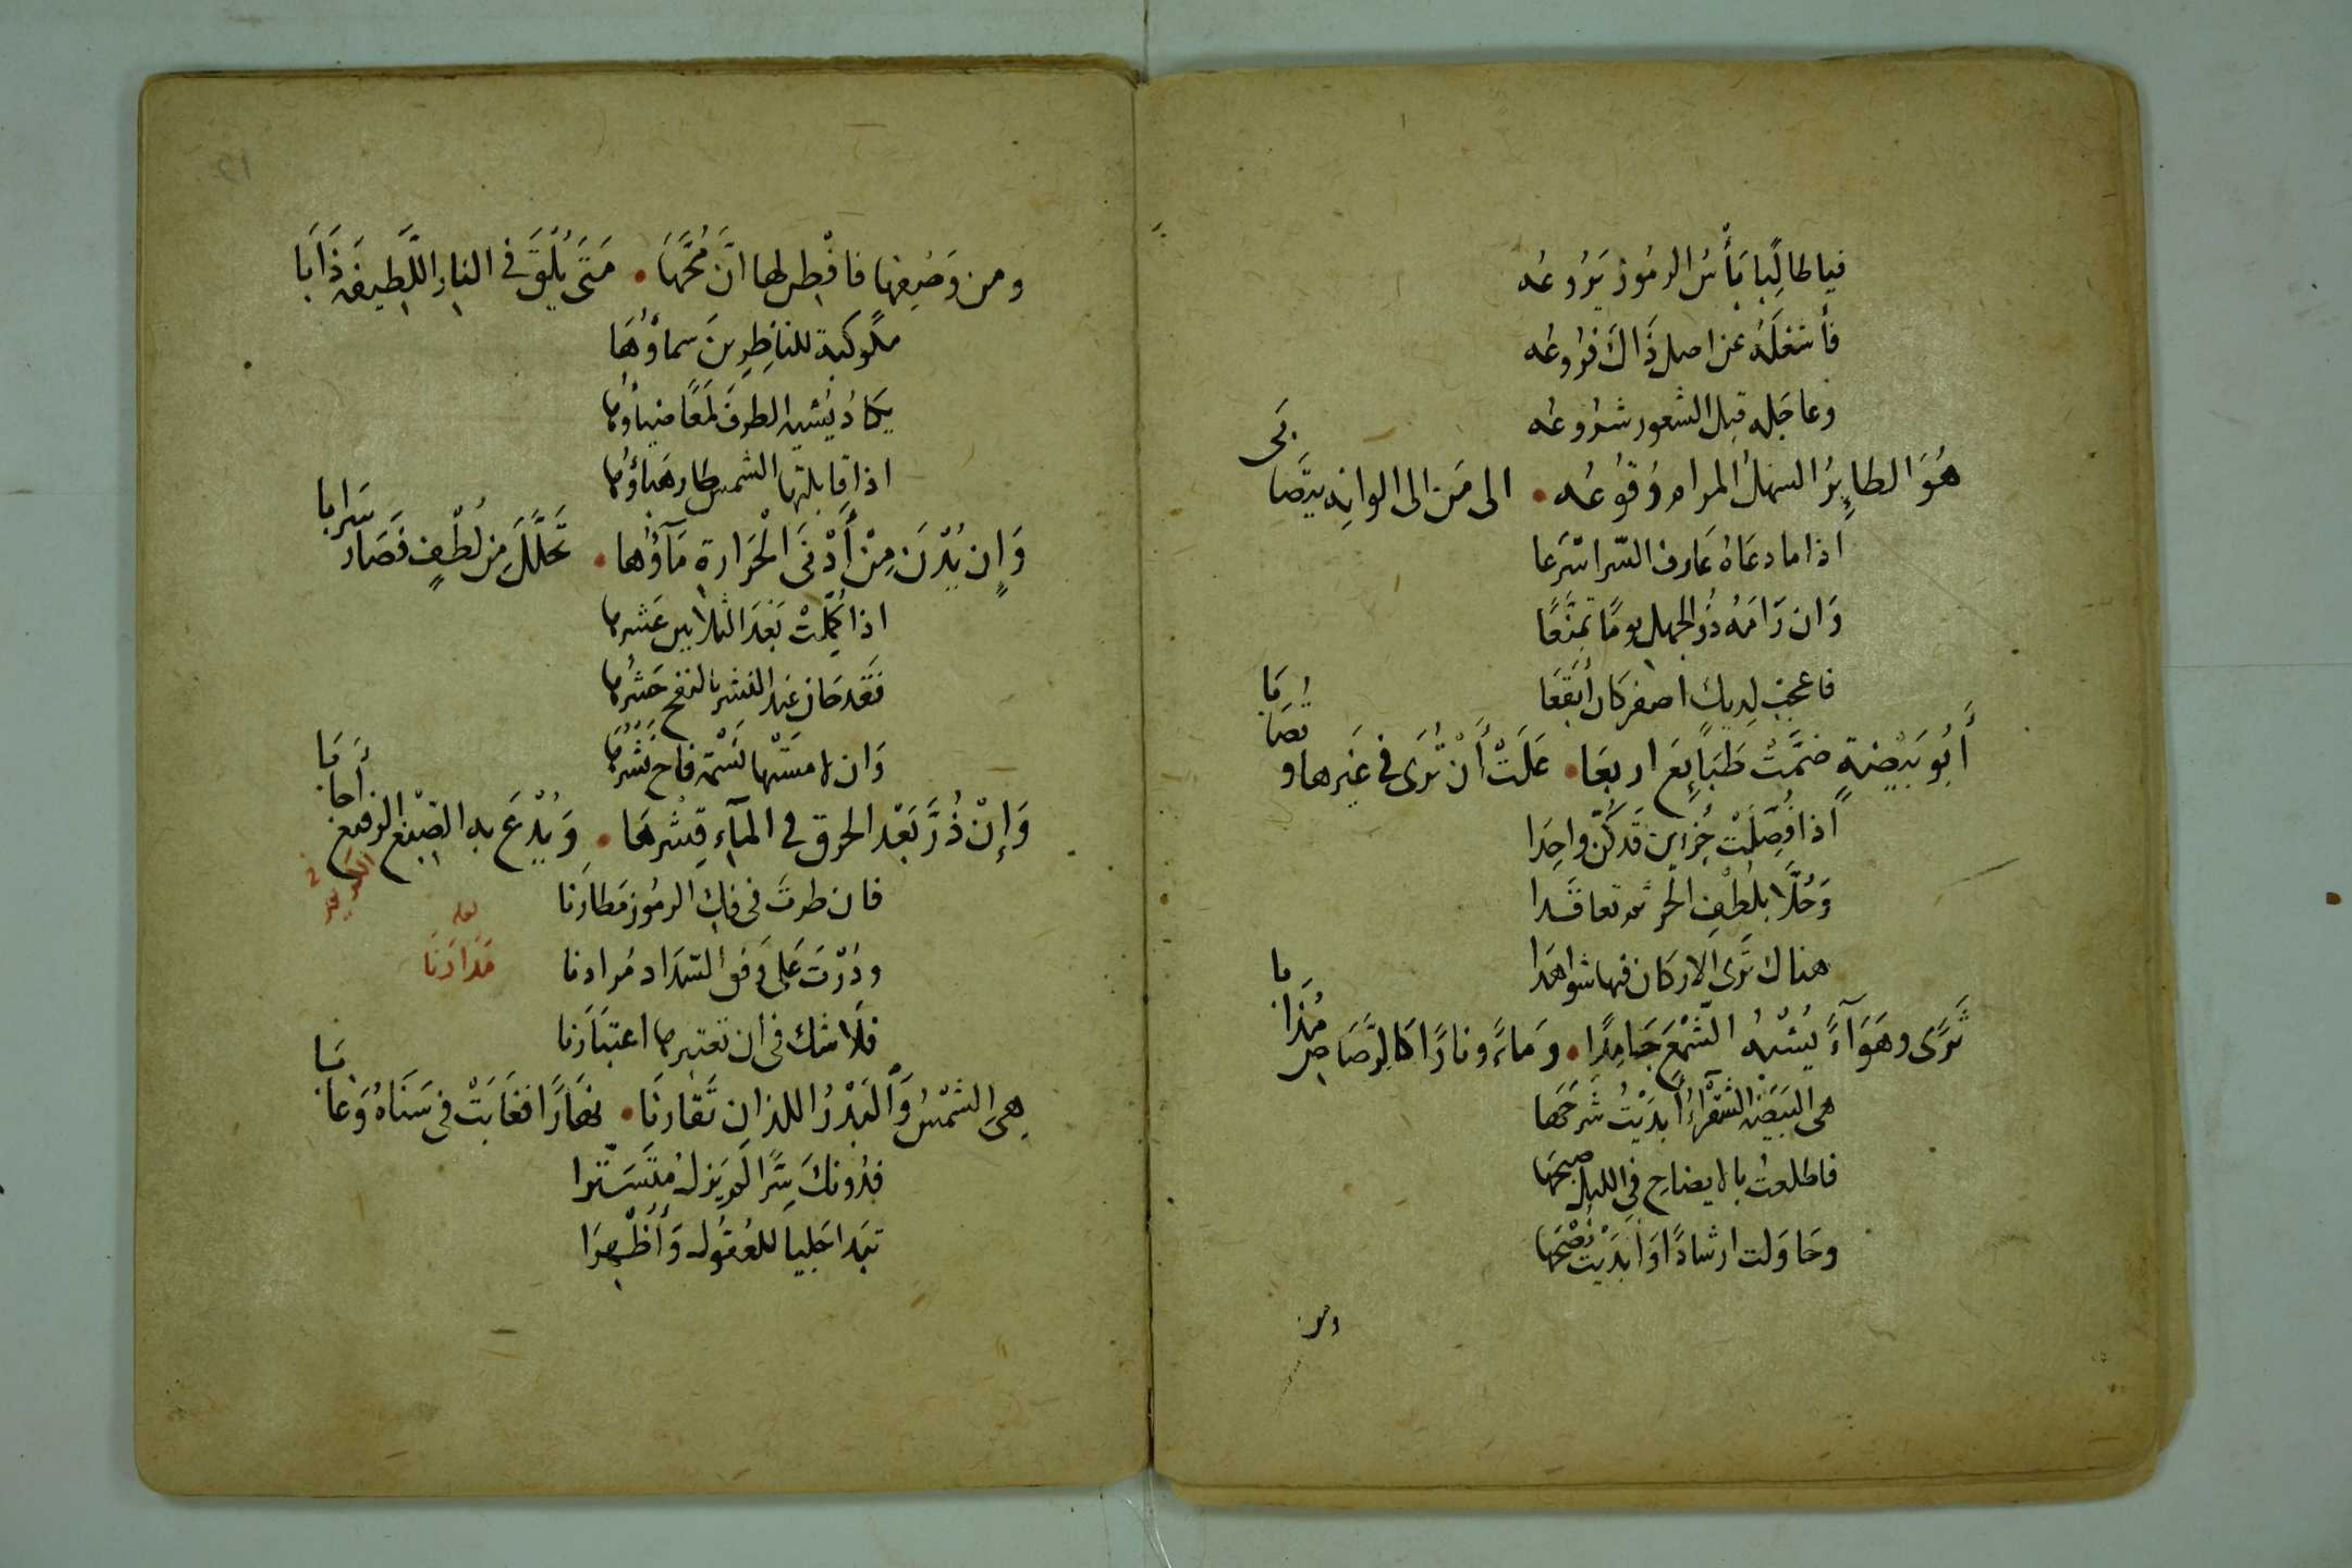 فيا طالِبًا بَأْسُ الرمُوز يَرُوعُه
فأشغَلَهُ عن اصل ذَاكَ فرُوعُه
وعاجَله قبل الشعور شرُوعُه
هُوَ الطايِرُ السَهلُ المرامِ وُقوعُه • الى مَن الى الوانِه يترَّصا
اذا ما دعَاهُ عَارف السّر اسْرَعا
وَان رَامَهُ ذُو الجهل يومًا تمنَّعًا
فاعجب لِديك اصفر كان أبقَعَا
أَبُو بَيْضةٍ ضمَّتْ طَبَايعَ اربعَا • عَلَتْ أَنْ تُرَى في غَيرها و
تُصَابَا
اذا فُصِّلَتْ جُزءين قد كُنّ واحِدا
وَحُلَّا بلُطْفِ الحَر ثم تعاقَدا
هناك تَرى الاركان فيها شواهدا
تَرَى وهَوَآءً يُشْبهُ الشَّمْعَ جَامِدًا • وَمَاءً ونارًا كالرَّصَاص
مُذَابا
هى البَيضَة الشقْرآءُ أبدَيْتُ شَرحَها
فاطلعتُ بالايضاحِ في الليل صبحَهَا
وحَاوَلت ارشادًا وَابْدَيْت نُصْحَهَا
ومن
ومن وَصْفِها فافْطِر لها انَّ مُحَّهَا • مَتَى يُلْقَ في النار اللَّطيفة ذَابَا
مكوكبة للناظِرينَ سماؤُهَا
يكادُ يُشبه الطرفَ لمعًا ضياؤها
اذا قابلتها الشمس طار هَباؤها
وَإِن يُدْنَ مِنْ أَدْنَى الْحَرَارة مَآؤُها • تَحَلَّلَ مِن لُطْفٍ فَصَار
سَرابا
اذا كمّلَتْ بَعْدَ الثلاثين عَشرها
فقد حَان عند النشر بالنفخ حَشرُها
وَان لامسَتْها نسْمة فاح نَشْرُهَا
وَإِنْ ذُرَّ بَعْد الحرق في المآءِ قِشْرهَا • وَيُدْعَ به الصِبْغ الرَفيع
أَجابَا
فان طرتَ فى فك الرمُوز مَطارَنا
لعله
مَدَارَنَا
ودُرْتَ عَلى وَفق السّدَاد مُرادنا
فلَا شك فى ان تعتبرها اعتبَارَنا
هِىَ الشَمْسُ وَالبَدْرُ اللذانِ تَقَارنَا • نهَارًا فغَابَتْ فى سَنَاهُ وَغَا
بَا
فدُونكَ سِرًّا لم يَزلْ مُتَسَتّرا
تبَدا جَليا للعُقُول وَأَظْهرَا